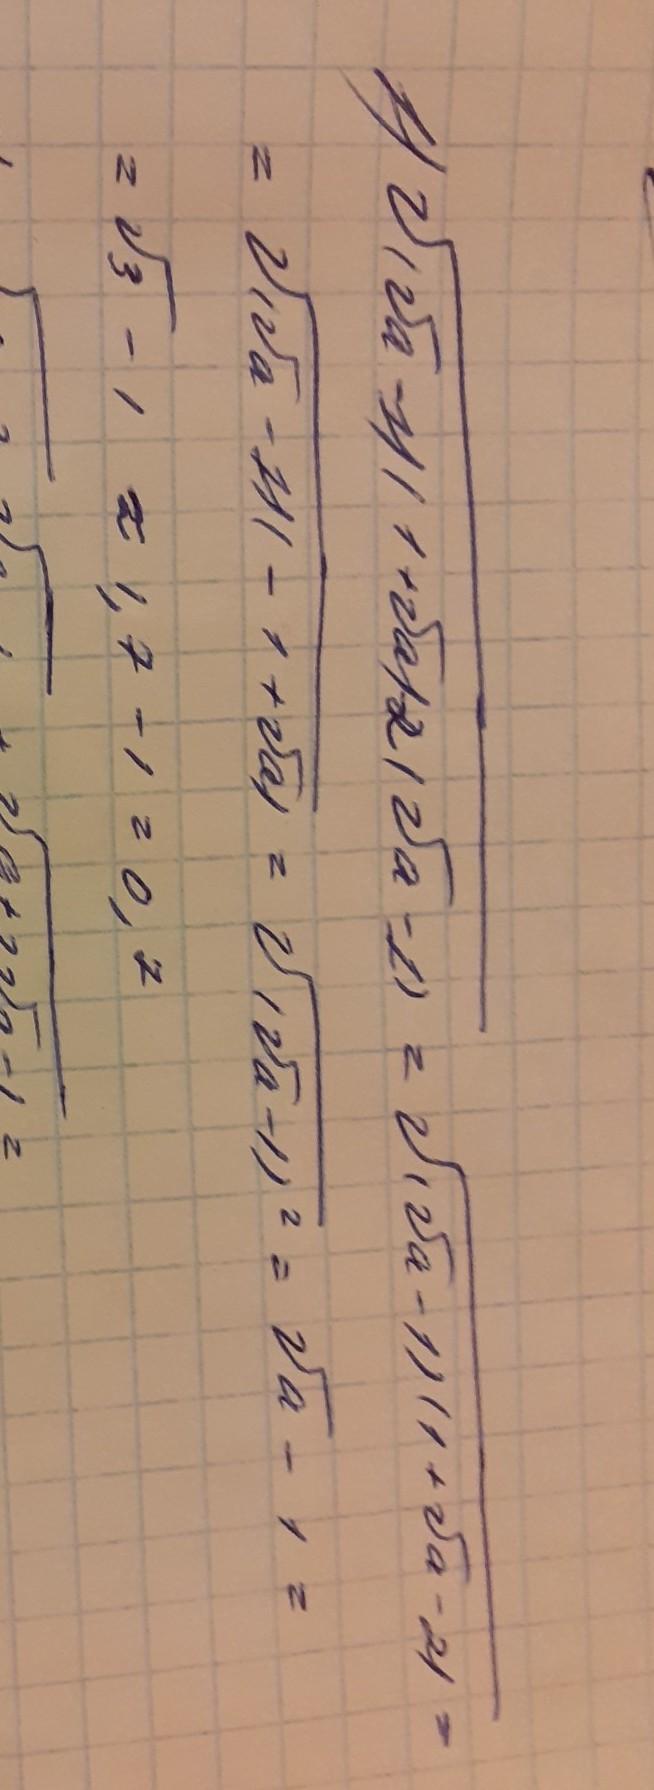 1) √((√a - 1)(1 + √a) - 2(√a - 1)) = √((√a - 1)(1 + √a - 2)) =
= √((√a - 1)(- 1 + √a)) = √((√a - 1)²) = √a - 1 =
= √3 - 1 ≈ 1,7 - 1 = 0,7